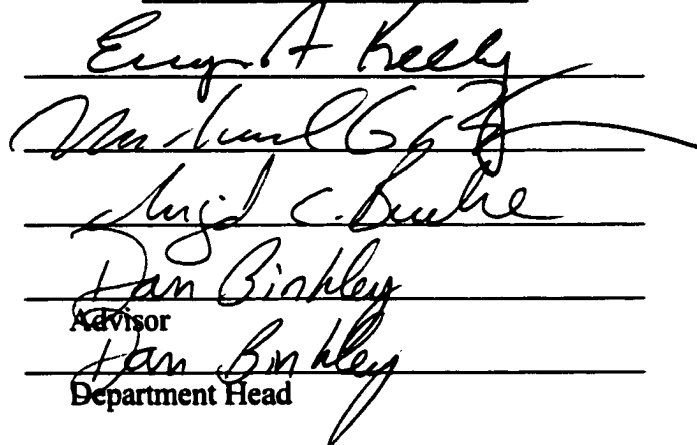 Eugene A Kelly
Michael G.
Ingrid C. Burke
Dan Binkley
Advisor
Dan Binkley
Department Head